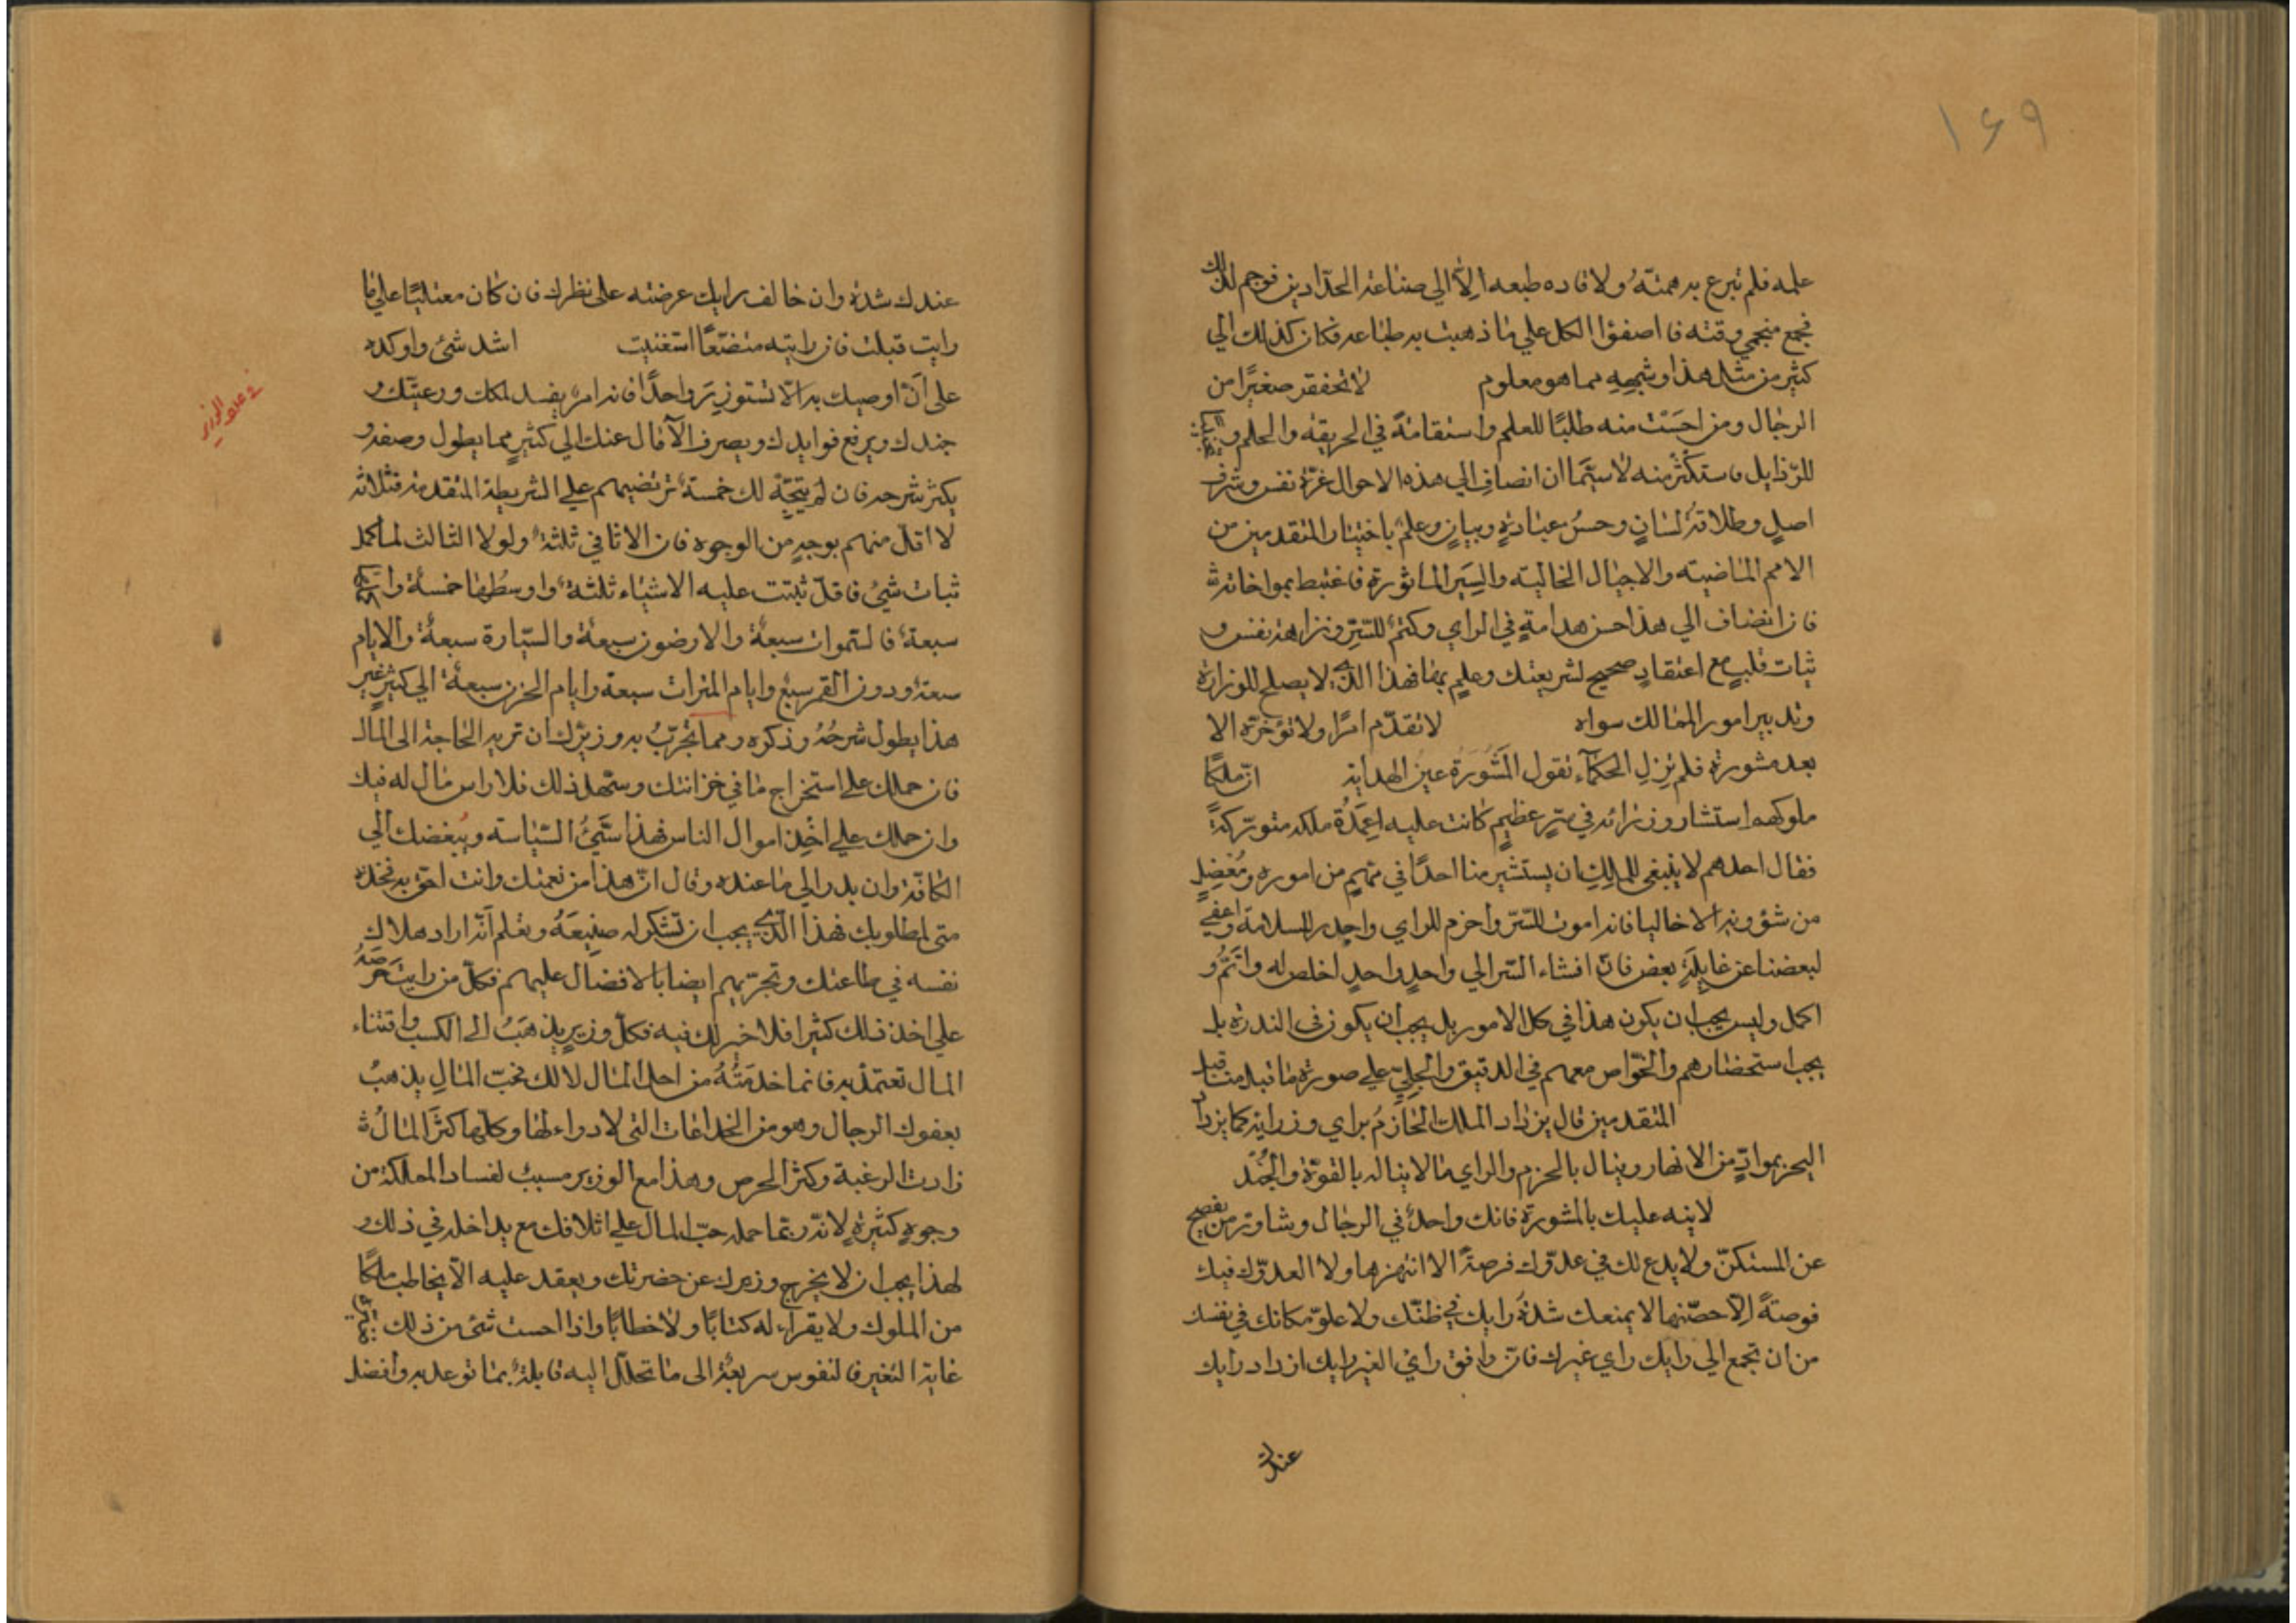 ۱۶۹
علمه فلم تبرع به همّته ولا قاده طبعه الّا الي صناعة الحدّادين فوجم لذلك
فجمع منجمي وقته فاصفقوا الكل علي ما ذهبت به طباعه فكان كذلك الي
كثير من مثل هذا وشبهه مما هو معلوم لا تحقر صغيرًا من
الرجال ومن احسَسْت منه طلبًا للعلم واستقامةً في الطريقة والحلم و
للرّذايل فاستكثر منه لا سيّما ان انضاف الي هذه الاحوال عزّة نفس وشرف
اصلٍ وطلاقةُ لسانٍ وحسنُ عبارةٍ وبيانٍ وعلمٌ باخبار المتقدمين من
الامم الماضية والاجيال الخالية والسِيَر المأثورة فاغتبط بمواخاته
فان انضاف الي هذا حسن هدامةٍ في الراي وكتمٌ للسّرّ ونزاهة نفس و
ثبات قلبٍ مع اعتقادٍ صحيح لشريعتك وعلمٍ بها فهذا الذي لا يصلح للوزارة
وتدبير امور الممالك سواه لا تقدّم امرًا ولا تؤخّره الا
بعد مشورة فلم تزل الحكمآء تقول المَشُورَة عين الهداية انّ ملكًا
ملوكهم استشار وزرائه في سرٍ عظيمٍ كانت عليه اعمدة ملكه متورّكة
فقال احدهم لا ينبغي للملك ان يستشير منا احدًا في مهمٍ من اموره ومُعْضِلٍ
من شؤونه الا خاليا فانه اموت للسّرّ واحزم للراي واجدر بالسلامة واعفي
لبعضنا عن غايلة بعض فانّ افشاء السّر الي واحدٍ واحدٍ اخلص له واتمّ و
اكمل وليس يجب ان يكون هذا في كل الامور بل يجب ان يكون في الندرة بل
يجب استحضارهم والخوّاص معهم في الدقيق والجليّ علي صورة ما قبله منا قبل
المتقدمين قال يزداد الملك الحازمُ براي وزرائه كما يزداد
البحر بموادّ من الانهار وينال بالحزم والراي ما لا يناله بالقوّة والجُنْد
لابنه عليك بالمشورة فانك واحدٌ في الرجال وشاور من يفصح
عن المستكنّ ولا يدع لك في عدوّك فرصةً الا انتهزها ولا لعدوّك فيك
فرصةً الّا حصّنها لا يمنعك شدّة رايك في ظنّك ولا علوّ مكانك في نفسك
من ان تجمع الي رايك راي غيرك فان وافق رايُ الغير رايك ازداد رايك
عندك
عندك شدة وان خالف رايك عرضته علي نظرك فان كان معتليًا علي ما
رايت قبلت فان رايته متضعًا استغنيت اشد شئ واوكده
علي انْ اوصيك به الّا تستوزِر واحدًا فانه امرٌ يفسد لملكك ورعيّتك و
جندك ويرفع فوايدك ويصرف الآمال عنك الي كثير مما يطول وصفه و
يكثر شرحه فان لم يتجّه لك خمسةٌ ترتضيهم علي الشريطة المتقدمة فثلاثة
لا اقلّ منهم بوجهٍ من الوجوه فان الاثافي ثلثةٌ ولولا الثالث لما كمل
ثبات شئ فاقلّ ثبتت عليه الاشياء ثلثةٌ واوسطها خمسةٌ
سبعةٌ فالسّموات سبعةٌ والارضون سبعةٌ والسّيارة سبعةٌ والايام
سبعةٌ ودون القمر سبع وايام المرات سبعة وايام الحزن سبعة الي كثير غير
هذا يطول شرحُهُ وذكره ومما تجرّبُ به وزيرَك ان تريه الحاجة الي المال
فان حملك علي استخراج ما في خزانتك وسهّل ذلك فلا راس مال له فيك
وان حملك علي اخذِ اموال الناس فهذا سَيّئُ السّياسة ويُبغضك الي
الكافّة وان بدر الي ما عنده وقال انّ هذا من نعمتك وانت احقّ به فخذه
متي لمطلوبك فهذا الّذي يجب ان تشكر له صنيعَهُ وتعلم أنّه اراد هلاك
نفسه في طاعتك وتجرّبهم ايضا بالافضال عليهم فكلّ من رايت حرصَهُ
علي اخذ ذلك كثيرا فلا خير لك فيه فكلّ وزيرٍ يذهَبُ الي الكسب واقتناء
المال تعتمد به فانما خدمَتُهُ من اجل المال لا لك فحبّ المالِ يذهبُ
بعفوك الرجال وهو من الخداعات التي لا دواء لها وكلّما كثَرَ المالُ
زادت الرغبة وكثر الحرص وهذا مع الوزير مسببٌ لفساد المملكة من
وجوهٍ كثيرةٍ لانه ربّما حمله حبّ المال علي اتلافك مع يد اخله في ذلك و
لهذا يجب ان لا يخرج وزيرك عن حضرتك ويعقد عليه الّا يخاطب ملكًا
من الملوك ولا يقراء له كتابًا ولا خطابًا واذا احست شئ من ذلك
غاية التغير فالنفوس سريعةٌ الي ما تحلّل اليه قابلةٌ بما توعد به وافضل